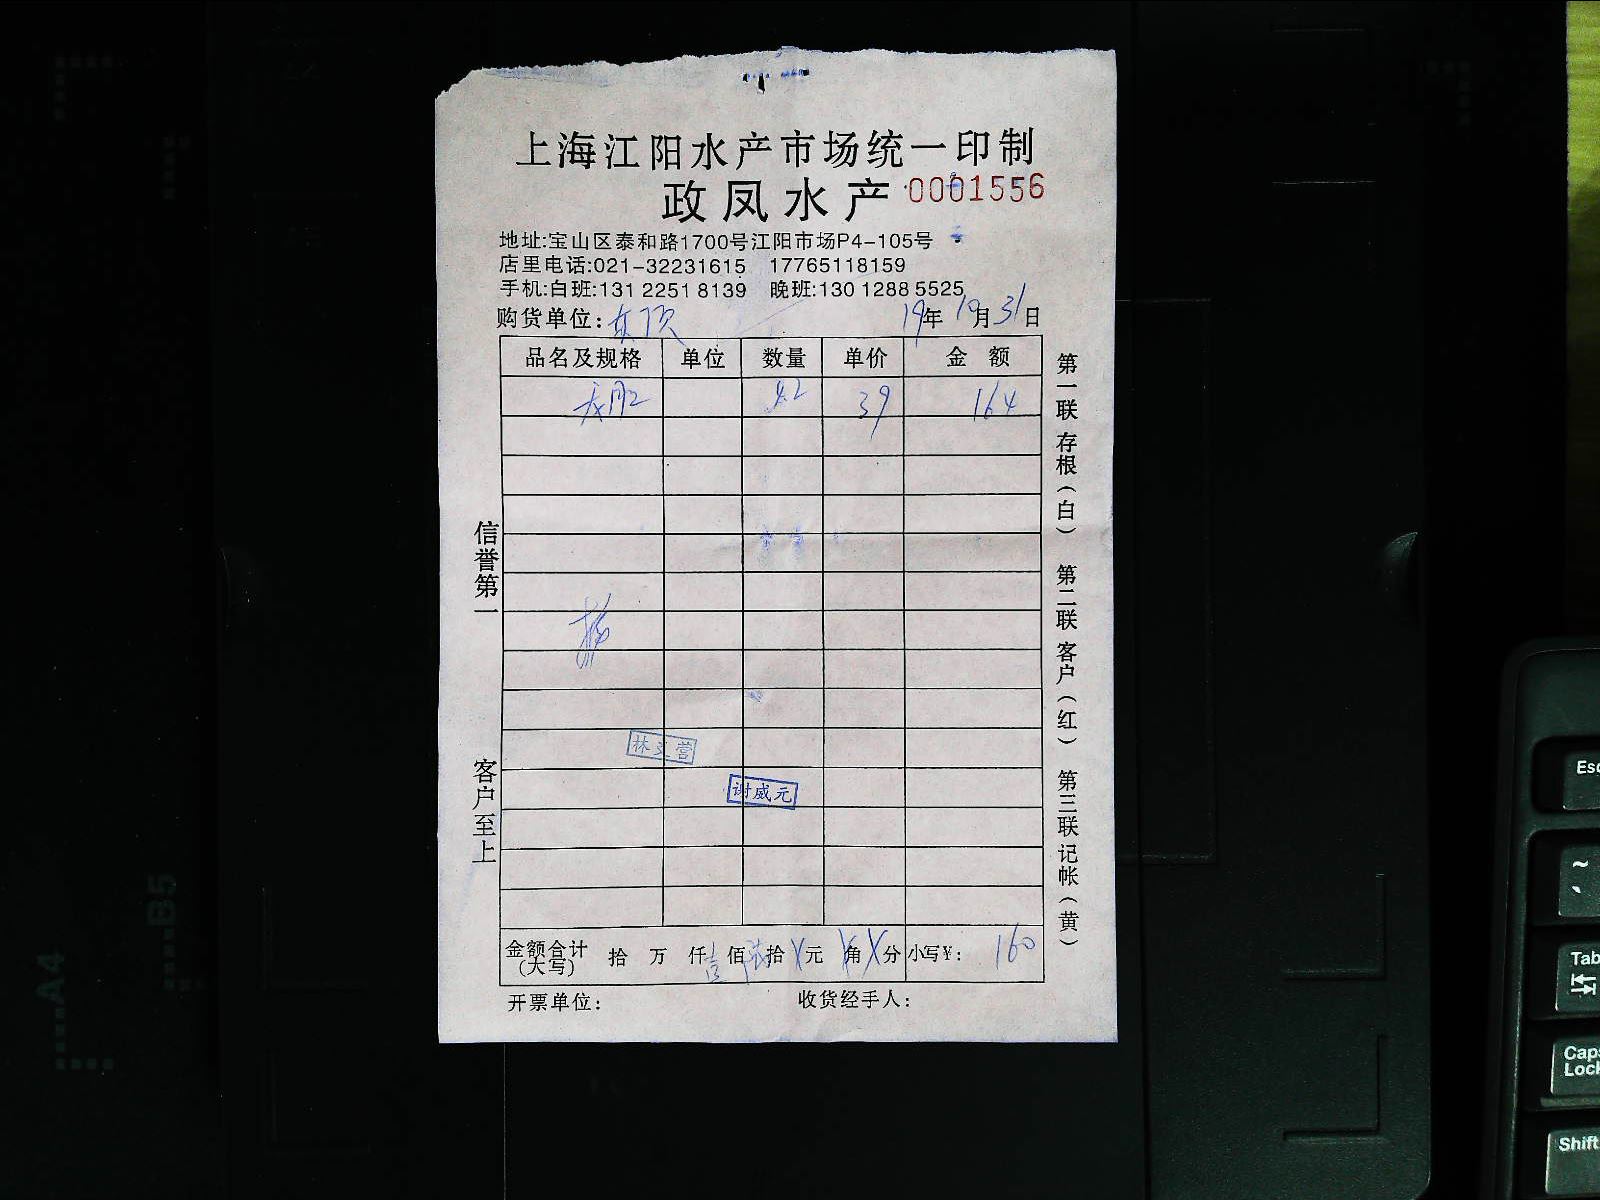 上海江阳水产市场统一印制
政凤水产 0001556
地址:宝山区泰和路1700号江阳市场P4-105号
店里电话:021-32231615 17765118159
手机:白班:131 2251 8139 晚班:130 1288 5525
购货单位: 19年10月31日
品名及规格 单位 数量 单价 金额
4.2 39 164
信誉第一
客户至上
谢威元
金额合计(大写) 拾 万 仟 壹佰 陆拾 X元 X角 X分 小写¥: 160
开票单位: 收货经手人:
第一联 存根(白) 第二联 客户(红) 第三联 记帐(黄)
A4
B5
Esc
~
Tab
Caps Lock
Shift